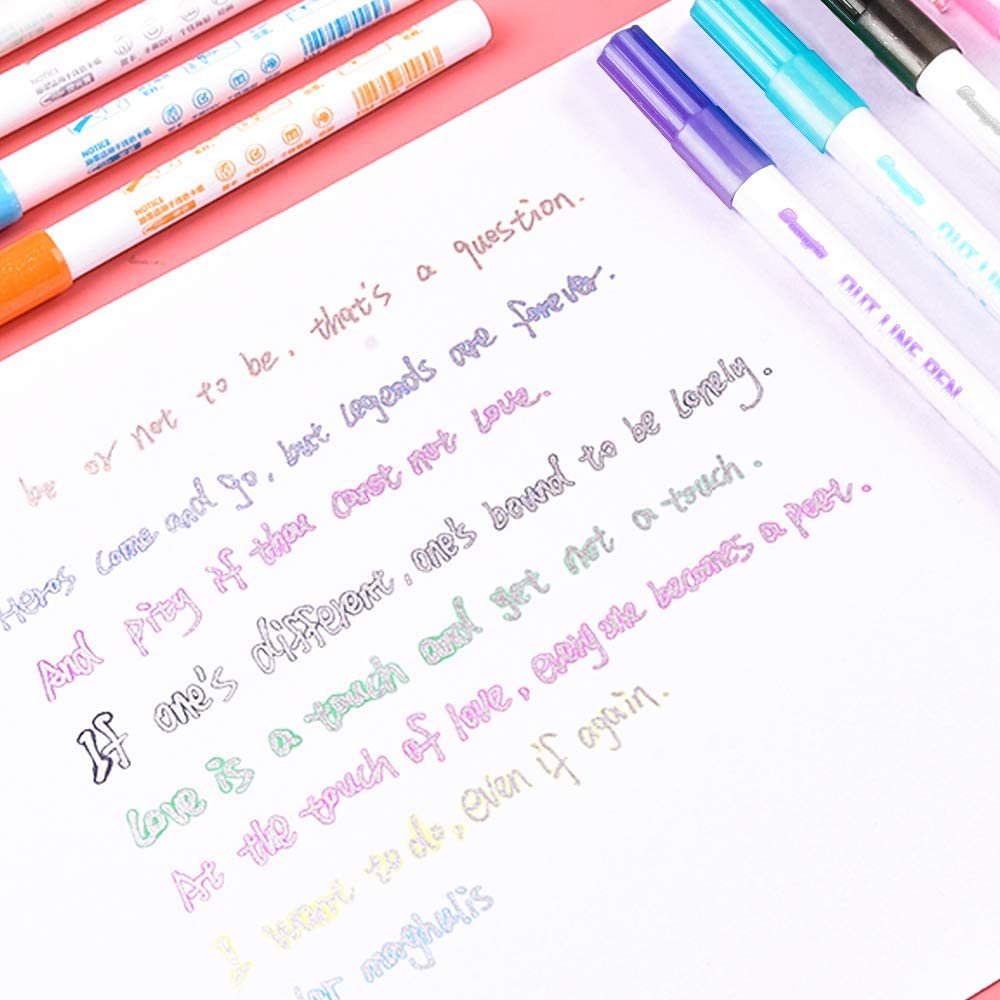 be or not to be, that's a question.
Heros come and go, but legends are forever.
And pity if thou canst not love.
If one's different, one's bound to be lonely.
Love is a touch and yet not a touch.
At the touch of love, every one becomes a poet.
I want to do, even if again.
maghulis
NOTICE
NOTICE
NOTICE
OUT LINE PEN
OUT LINE